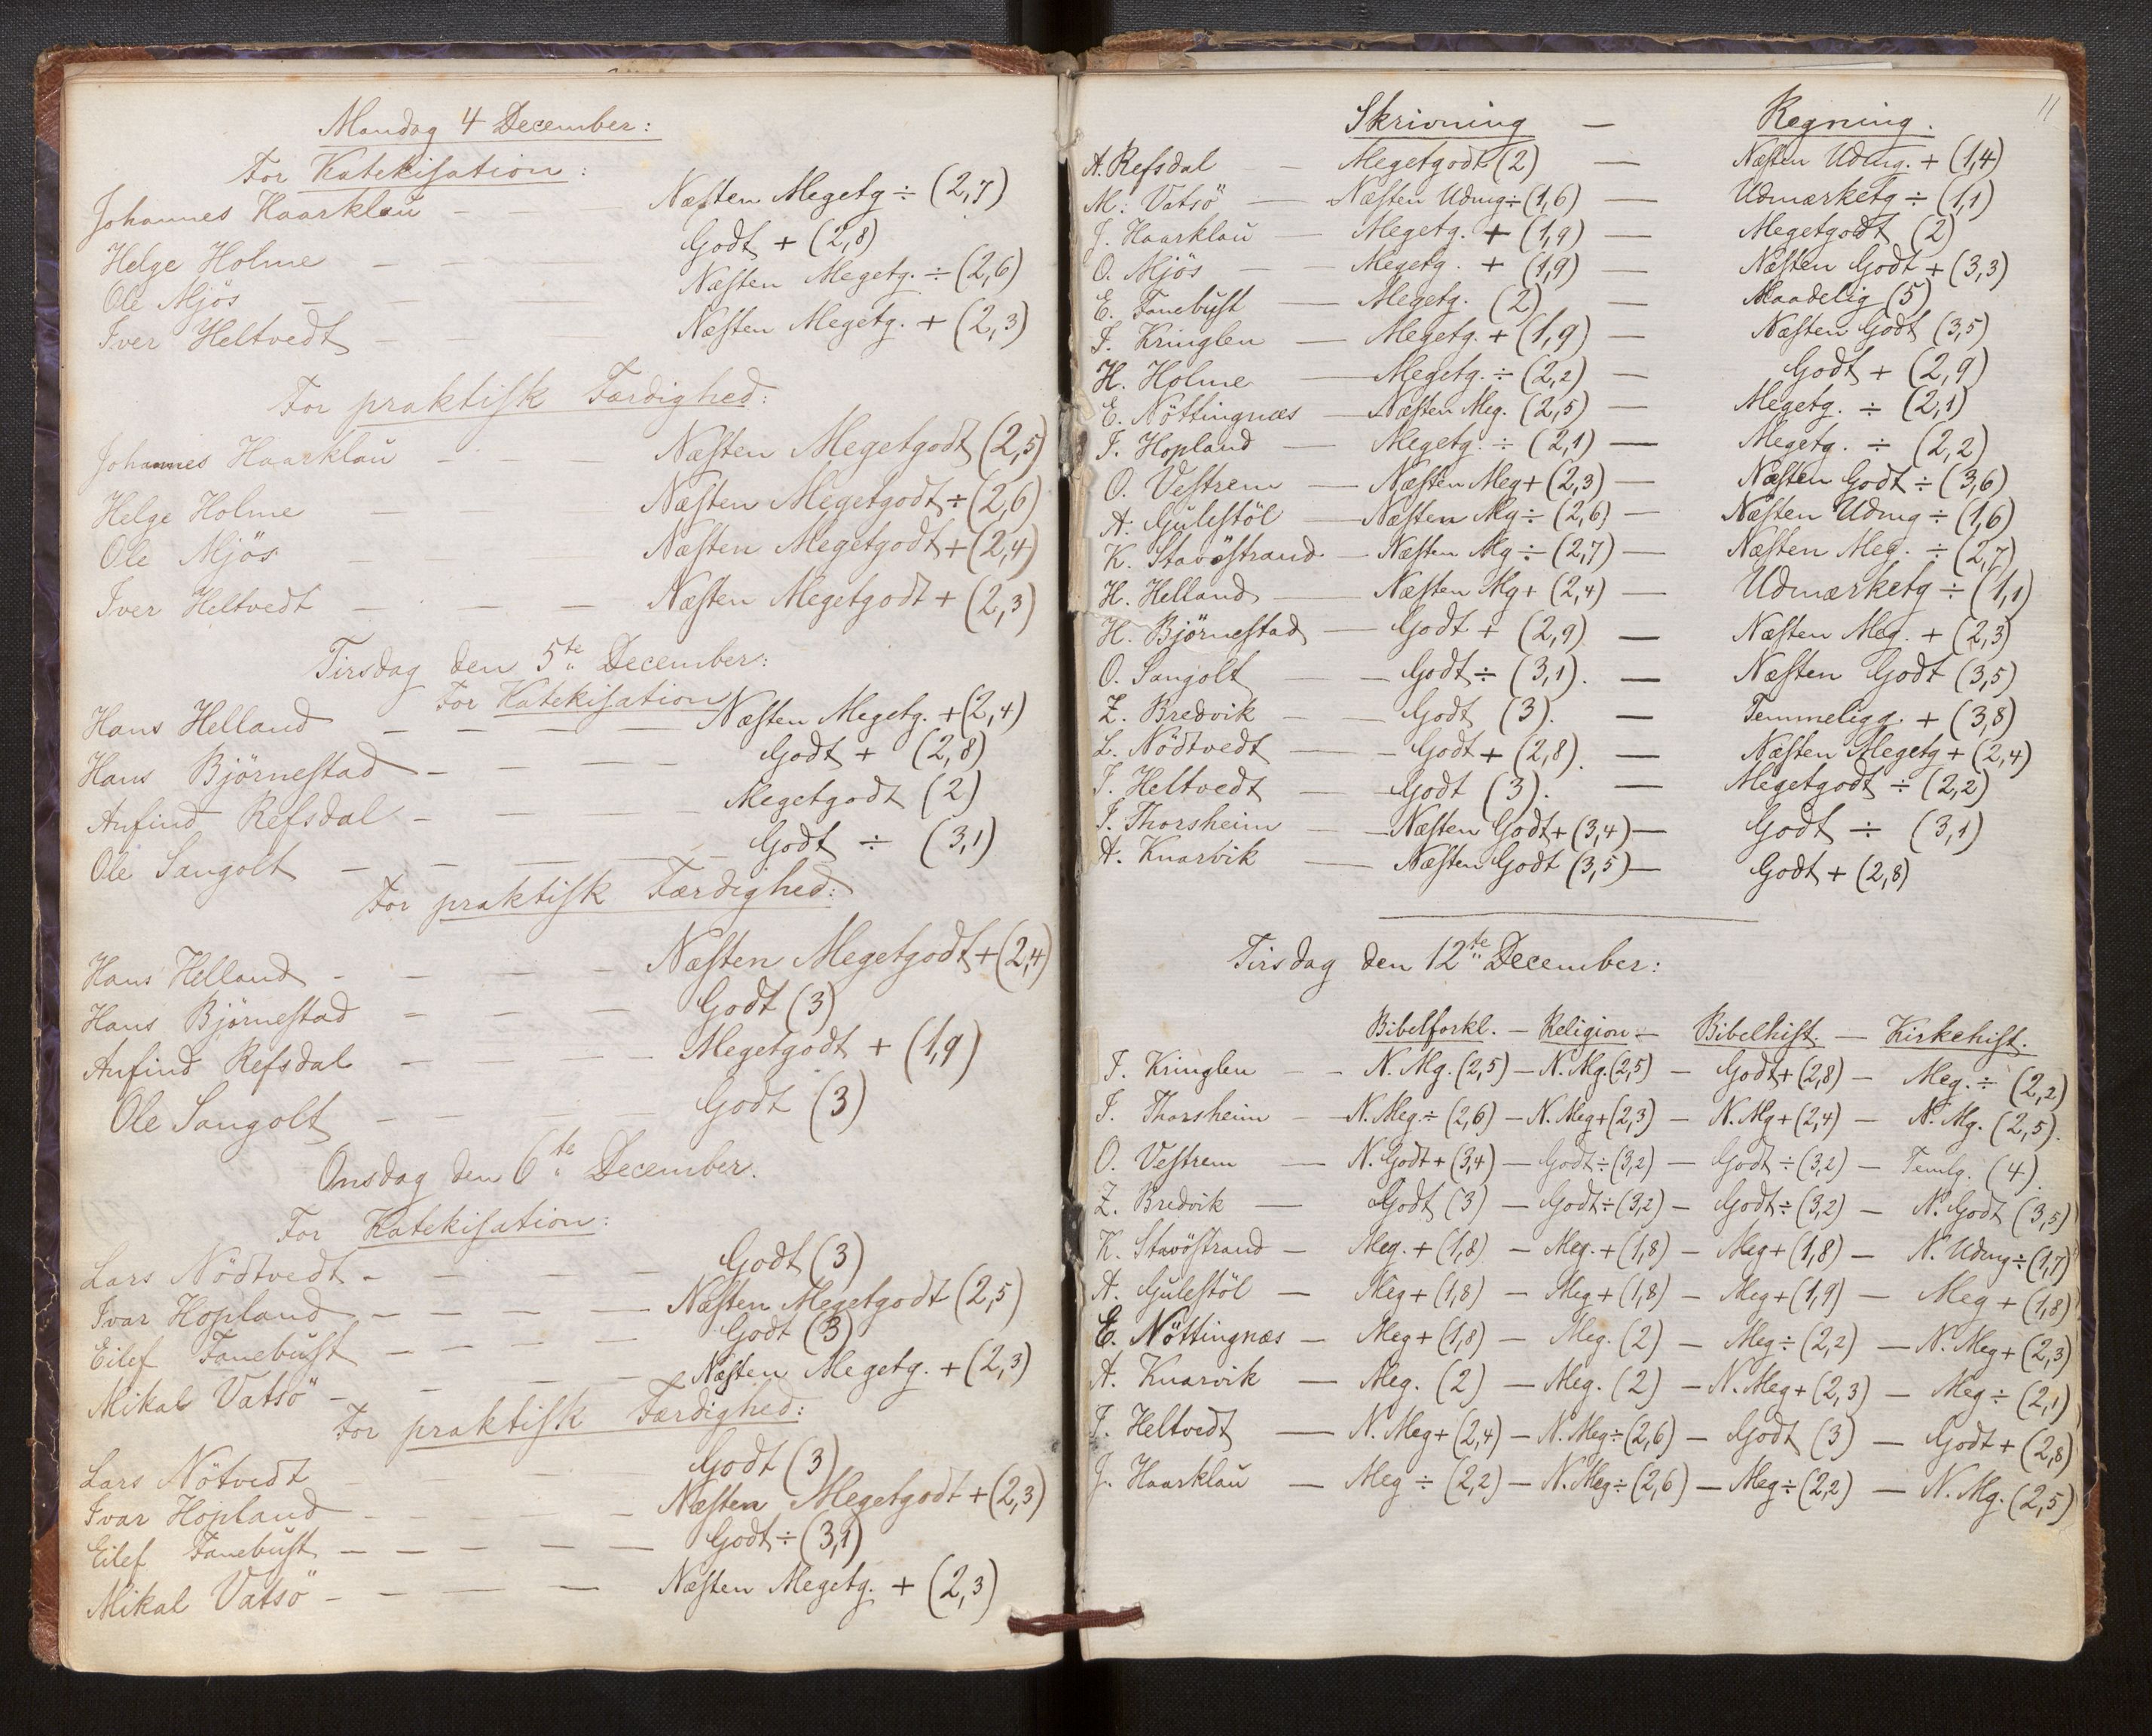 Mandag 4 December:
For Katekisation:
Johannes Haarklau - - - Næsten Megetg ÷ (2,7)
Helge Holme - - - Godt + (2,8)
Ole Mjös - - - Næsten Megetg. ÷ (2,6)
Iver Heltvedt - - - Næsten Megetg. + (2,3)
For praktisk Færdighed:
Johannes Haarklau - - - Næsten Megetgodt (2,5)
Helge Holme - - - Næsten Megetgodt ÷ (2,6)
Ole Mjös - - - Næsten Megetgodt + (2,4)
Iver Heltvedt - - - Næsten Megetgodt + (2,3)
Tirsdag den 5te December:
For Katekisation
Hans Helland - - - - Næsten Megetg. + (2,4)
Hans Björnestad - - - - Godt + (2,8)
Anfind Refsdal - - - - Megetgodt (2)
Ole Sangolt - - - - Godt ÷ (3,1)
For praktisk Færdighed:
Hans Helland - - - - Næsten Megetgodt + (2,4)
Hans Björnestad - - - Godt (3)
Anfind Refsdal - - - - Megetgodt + (1,9)
Ole Sangolt - - - - Godt (3)
Onsdag den 6te December.
For Katekisation:
Lars Nödtvedt - - - - Godt (3)
Ivar Hopland - - - - Næsten Megetgodt (2,5)
Eilef Fanebust - - - - Godt (3)
Mikal Vatsö - - - - Næsten Megetg. + (2,3)
For praktisk Færdighed:
Lars Nötvedt - - - Godt (3)
Ivar Hopland - - - - Næsten Megetgodt + (2,3)
Eilef Fanebust - - - - - Godt ÷ (3,1)
Mikal Vatsö - - - - Næsten Megetg. + (2,3)
11
Skrivning - Regning.
A. Refsdal - Megetgodt (2) - Næsten Udmg. + (1,4)
M: Vatsö - Næsten Udmg ÷ (1,6) - Udmærketg ÷ (1,1)
J. Haarklau - Megetg. + (1,9) - Megetgodt (2)
O. Mjös - Megetg. + (1,9) - Næsten Godt + (3,3)
E. Fanebust - Megetg. (2) - Maadelig (5)
I. Kringlen - Megetg. + (1,9) - Næsten Godt (3,5)
H. Holme - Megetg. ÷ (2,2) - Godt + (2,9)
E. Nöttingnæs - Næsten Meg. (2,5) - Megetg. ÷ (2,1)
I. Hopland - Megetg. ÷ (2,1) - Megetg. ÷ (2,2)
O. Vestrem - Næsten Meg + (2,3) - Næsten Godt ÷ (3,6)
A. Gulestöl - Næsten Mg ÷ (2,6) - Næsten Udmg ÷ (1,6)
K. Stavöstrand - Næsten Mg ÷ (2,7) - Næsten Meg. ÷ (2,7)
H. Helland - Næsten Mg + (2,4) - Udmærketg ÷ (1,1)
H. Björnestad - Godt + (2,9) - Næsten Meg. + (2,3)
O. Sangolt - Godt ÷ (3,1). - Næsten Godt (3,5)
Z. Bredvik - Godt (3). - Temmeligg. + (3,8)
L. Nödtvedt - Godt + (2,8). - Næsten Megetg + (2,4)
I. Heltvedt - Godt (3). - Megetgodt ÷ (2,2)
I. Thorsheim - Næsten Godt + (3,4) - Godt ÷ (3,1)
A. Knarvik - Næsten Godt (3,5) - Godt + (2,8)
Tirsdag den 12te December:
Bibelforkl. - Religion - Bibelhist. - Kirkehist.
I. Kringlen - N. Mg. (2,5) - N. Mg. (2,5) - Godt + (2,8) - Meg. ÷ (2,2)
I. Thorsheim - N. Meg. ÷ (2,6) - N. Meg + (2,3) - N. Mg + (2,4) - N. Mg. (2,5).
O. Vestrem - N. Godt + (3,4) - Godt ÷ (3,2) - Godt ÷ (3,2) - Temlg. (4).
Z. Bredvik - Godt (3) - Godt ÷ (3,2) - Godt ÷ (3,2) - N. Godt (3,5)
K. Stavöstrand - Meg. + (1,8) - Meg. + (1,8) - Meg + (1,8) - N. Udmg ÷ (1,7)
A. Gulestöl - Meg + (1,8) - Meg + (1,8) - Meg + (1,9) - Meg + (1,8)
E. Nöttingnæs - Meg + (1,8) - Meg. (2) - Meg ÷ (2,2) - N. Meg + (2,3)
A. Knarvik - Meg. (2) - Meg. (2) - N. Meg + (2,3) - Meg ÷ (2,1)
I. Heltvedt - N. Meg + (2,4) - N. Meg ÷ (2,6) - Godt (3) - Godt + (2,8)
J. Haarklau - Meg ÷ (2,2) - N. Meg ÷ (2,6) - Meg ÷ (2,2) - N. Mg. (2,5)